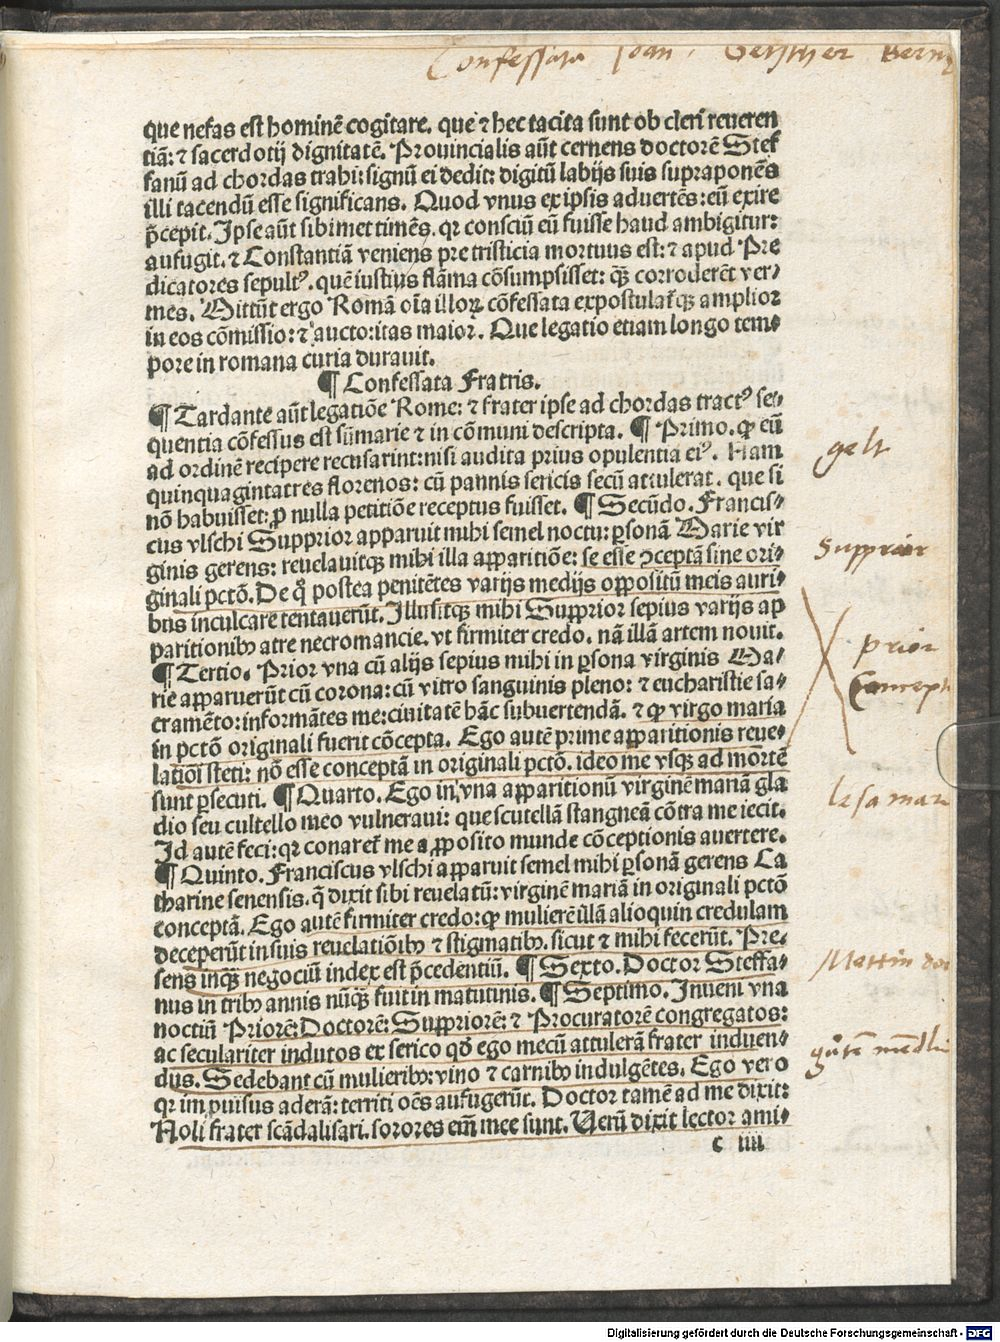 Confessata Joan. Getscher Bern
que nefas est hominē cogitare. que ⁊ hec tacita sunt ob cleri reueren
tiā: ⁊ sacerdotij dignitatē. Prouincialis aūt cernens doctorē Stef
fanū ad chordas trahi: signū ei dedit: digitū labijs suis supraponēs
illi tacendū esse significans. Quod vnus ex ipsis aduertēs: eū exire
p̄cepit. Ipse aūt sibimet timēs. qꝛ consciū eū fuisse haud ambigitur:
aufugit. ⁊ Constantiā veniens pre tristicia mortuus est: ⁊ apud Pre
dicatores sepultꝰ. quē iustius flāma cōsumpsisset: qꝫ corroderēt ver⸗
mes. Mittūt ergo Romā oīa illoꝝ cōfessata expostulat̄qꝫ amplior
in eos cōmissio: ⁊ auctoritas maior. Que legatio etiam longo tem⸗
pore in romana curia durauit.
¶ Confessata Fratris.
¶ Tardante aūt legatiōe Rome: ⁊ frater ipse ad chordas tractꝰ se⸗
quentia cōfessus est sūmarie ⁊ in cōmuni descripta. ¶ Primo. ꝙ eū
ad ordinē recipere recusarint: nisi audita prius opulentia eiꝰ. Nam
quinquagintatres florenos: cū pannis sericis secū attulerat. que si
nō habuisset: ꝓ nulla petitiōe receptus fuisset. ¶ Secūdo. Francis⸗
cus vlschi Supprior apparuit mihi semel noctu: ꝑsonā Marie vir
ginis gerens: reuelauitqꝫ mihi illa apparitiōe: se esse ꝯceptā sine ori⸗
ginali pctō. De qͦ postea penitētes varijs medijs oppositū meis auri⸗
bus inculcare tentauerūt. Illusitqꝫ mihi Supprior sepius varijs ap
paritionibꝰ atre necromancie. vt firmiter credo. nā illā artem nouit.
¶ Tertio. Prior vna cū alijs sepius mihi in ꝑsona virginis Ma⸗
rie apparuerūt cū corona: cū vitro sanguinis pleno: ⁊ eucharistie sa⸗
cramēto: informātes me: ciuitatē hāc subuertendā. ⁊ ꝙ virgo maria
in pctō originali fuerit cōcepta. Ego autē prime apparitionis reue⸗
lationī steti: nō esse conceptā in originali pctō. ideo me vsqꝫ ad mortē
sunt ꝑsecuti. ¶ Quarto. Ego in vna apparitionū virginē mariā gla
dio seu cultello meo vulneraui: que scutellā stangneā cōtra me iecit.
Id autē feci: qꝛ conaret̄ me a ꝓposito munde cōceptionis auertere.
¶ Quinto. Franciscus vlschi apparuit semel mihi ꝑsonā gerens Ca
tharine senensis. q̄ dixit sibi reuelatū: virginē mariā in originali pctō
conceptā. Ego autē firmiter credo: ꝙ mulierē illā alioquin credulam
deceperūt in suis reuelatiōibꝰ ⁊ stigmatibꝰ. sicut ⁊ mihi fecerūt. Pre⸗
sens inqꝫ negociū index est p̄cedentiū. ¶ Sexto. Doctor Steffa⸗
nus in tribꝰ annis nūqꝫ fuit in matutinis. ¶ Septimo. Inueni vna
noctiū Priorē: Doctorē: Suppriorē: ⁊ Procuratorē congregatos:
ac seculariter indutos ex serico qd̓ ego mecū attulerā frater induen⸗
dus. Sedebant cū mulieribꝰ: vino ⁊ carnibꝰ indulgētes. Ego vero
qꝛ improuisus aderā: territi oēs aufugerūt. Doctor tamē ad me dixit:
Noli frater scādalisari. sorores em̄ mee sunt. Verū dixit lector ami⸗
c iiii
gelt
Supprior
prior
Concept
lesa mari
Mettin
Digitalisierung gefördert durch die Deutsche Forschungsgemeinschaft - DFG